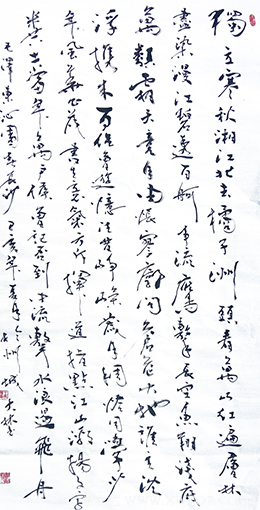 獨立寒秋湘江北去橘子洲頭看萬山紅遍層林
盡染漫江碧透百舸爭流鷹擊長空魚翔淺底
萬類霜天競自由悵寥廓問蒼茫大地誰主沉
浮攜來百侶曾遊憶往昔崢嶸歲月稠恰同學少
年風華正茂書生意氣揮斥方遒指點江山激揚文字
糞土當年萬戶侯曾記否到中流擊水浪遏飛舟
毛澤東沁園春長沙 亥年 月 州城